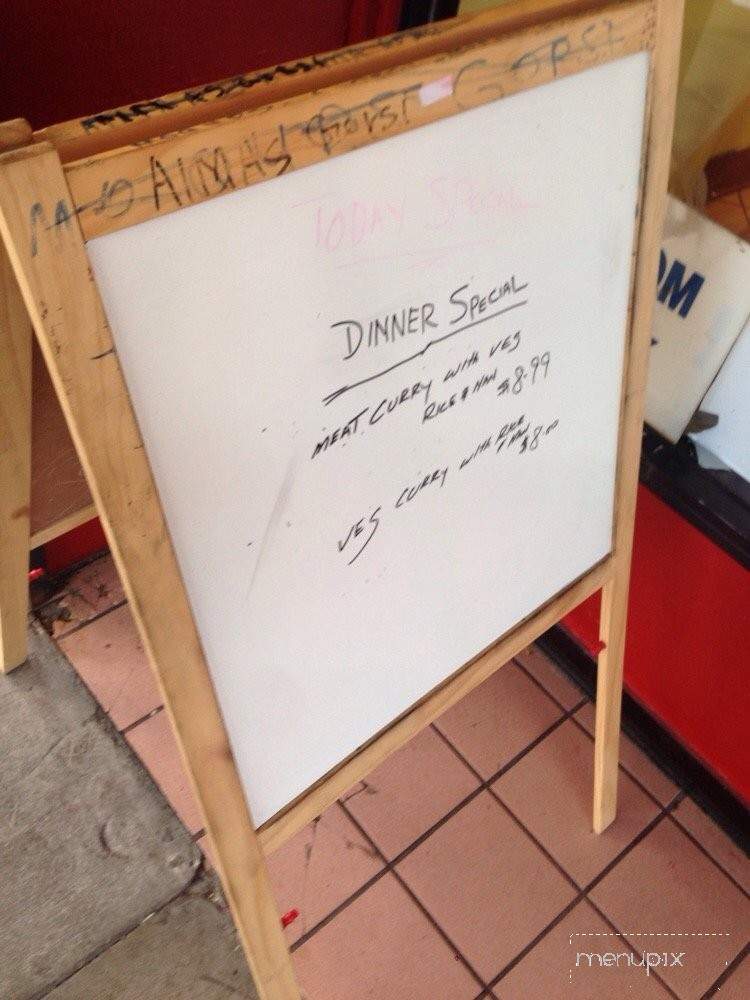 TODAY SPECIAL
DINNER SPECIAL
MEAT CURRY WITH VEG
RICE & NAN $8.99
VEG CURRY WITH RICE
& NAN
$8.00
OM
menupix